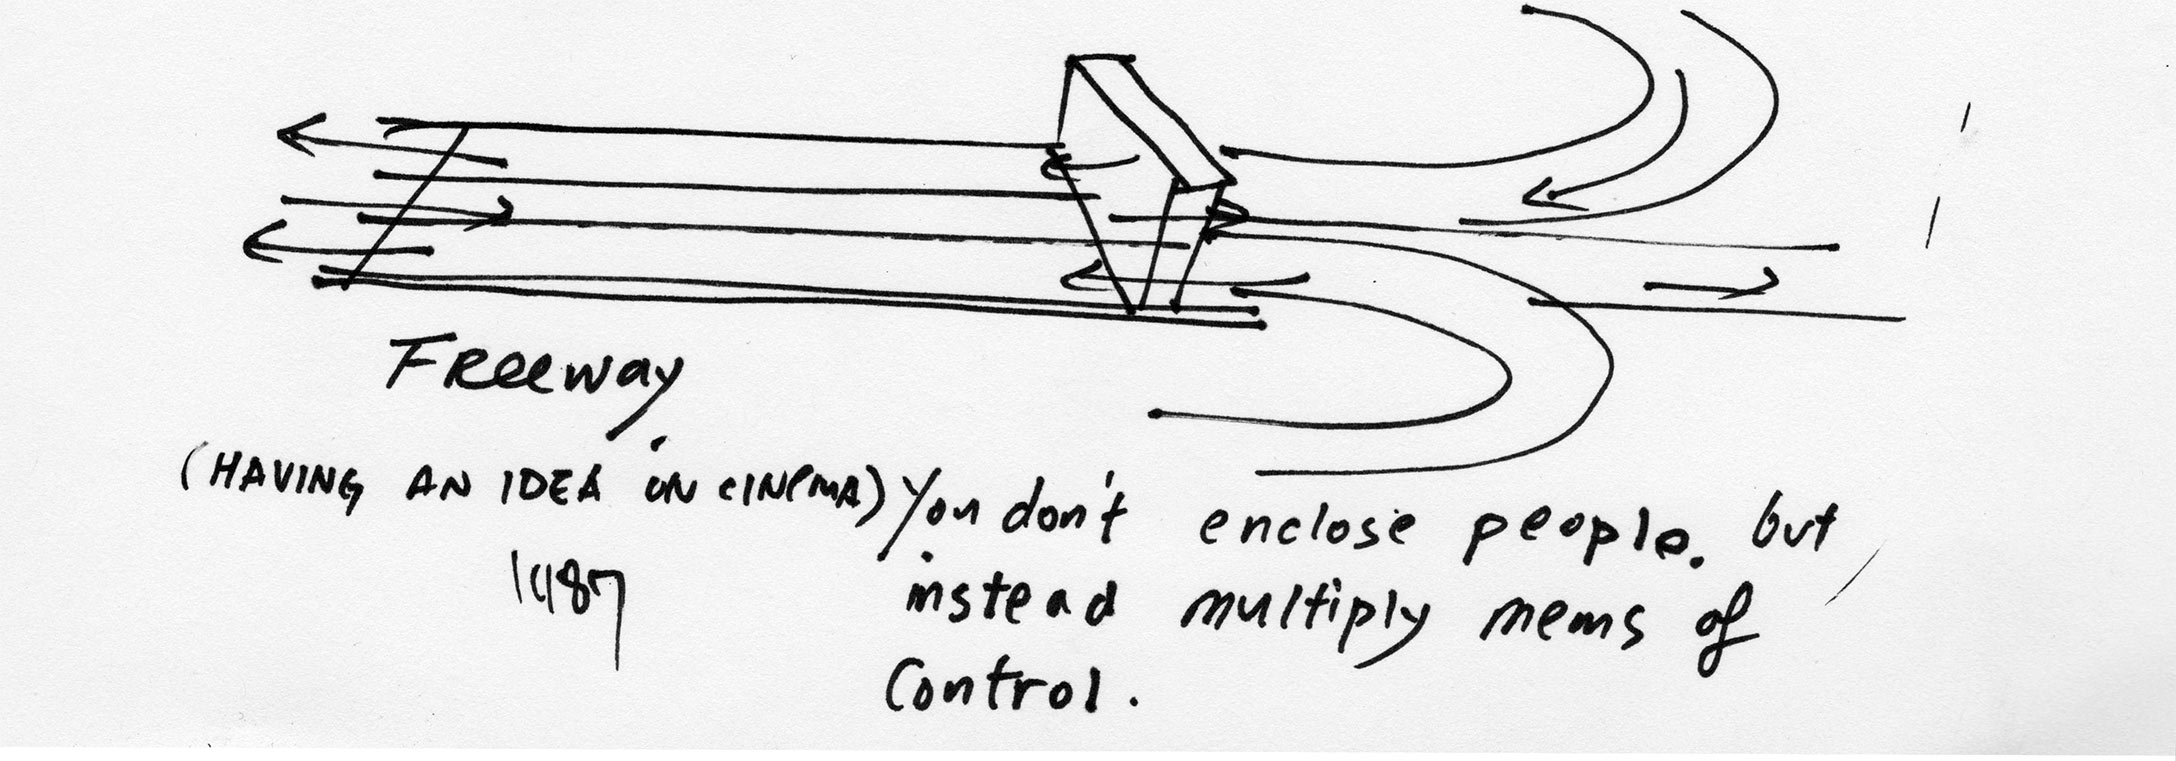 Freeway
(HAVING AN IDEA IN CINEMA) You don't enclose people. but
1987 instead multiply mems of
Control.